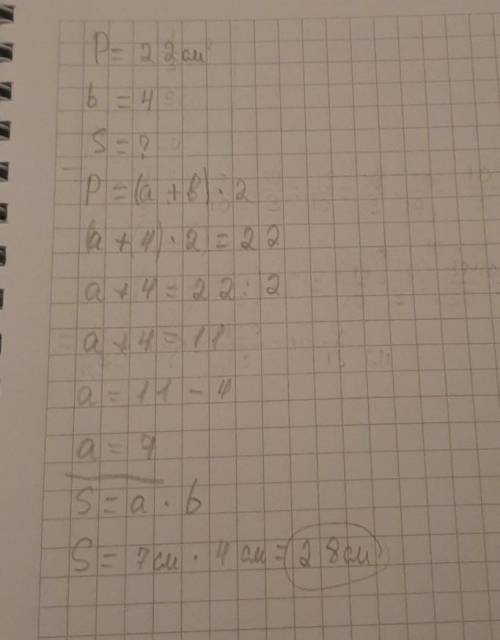 P = 22см
b = 4
S = ?
P = (a + b) · 2
(a + 4) · 2 = 22
a + 4 = 22 : 2
a + 4 = 11
a = 11 - 4
a = 7
S = a · b
S = 7см · 4см = 28см